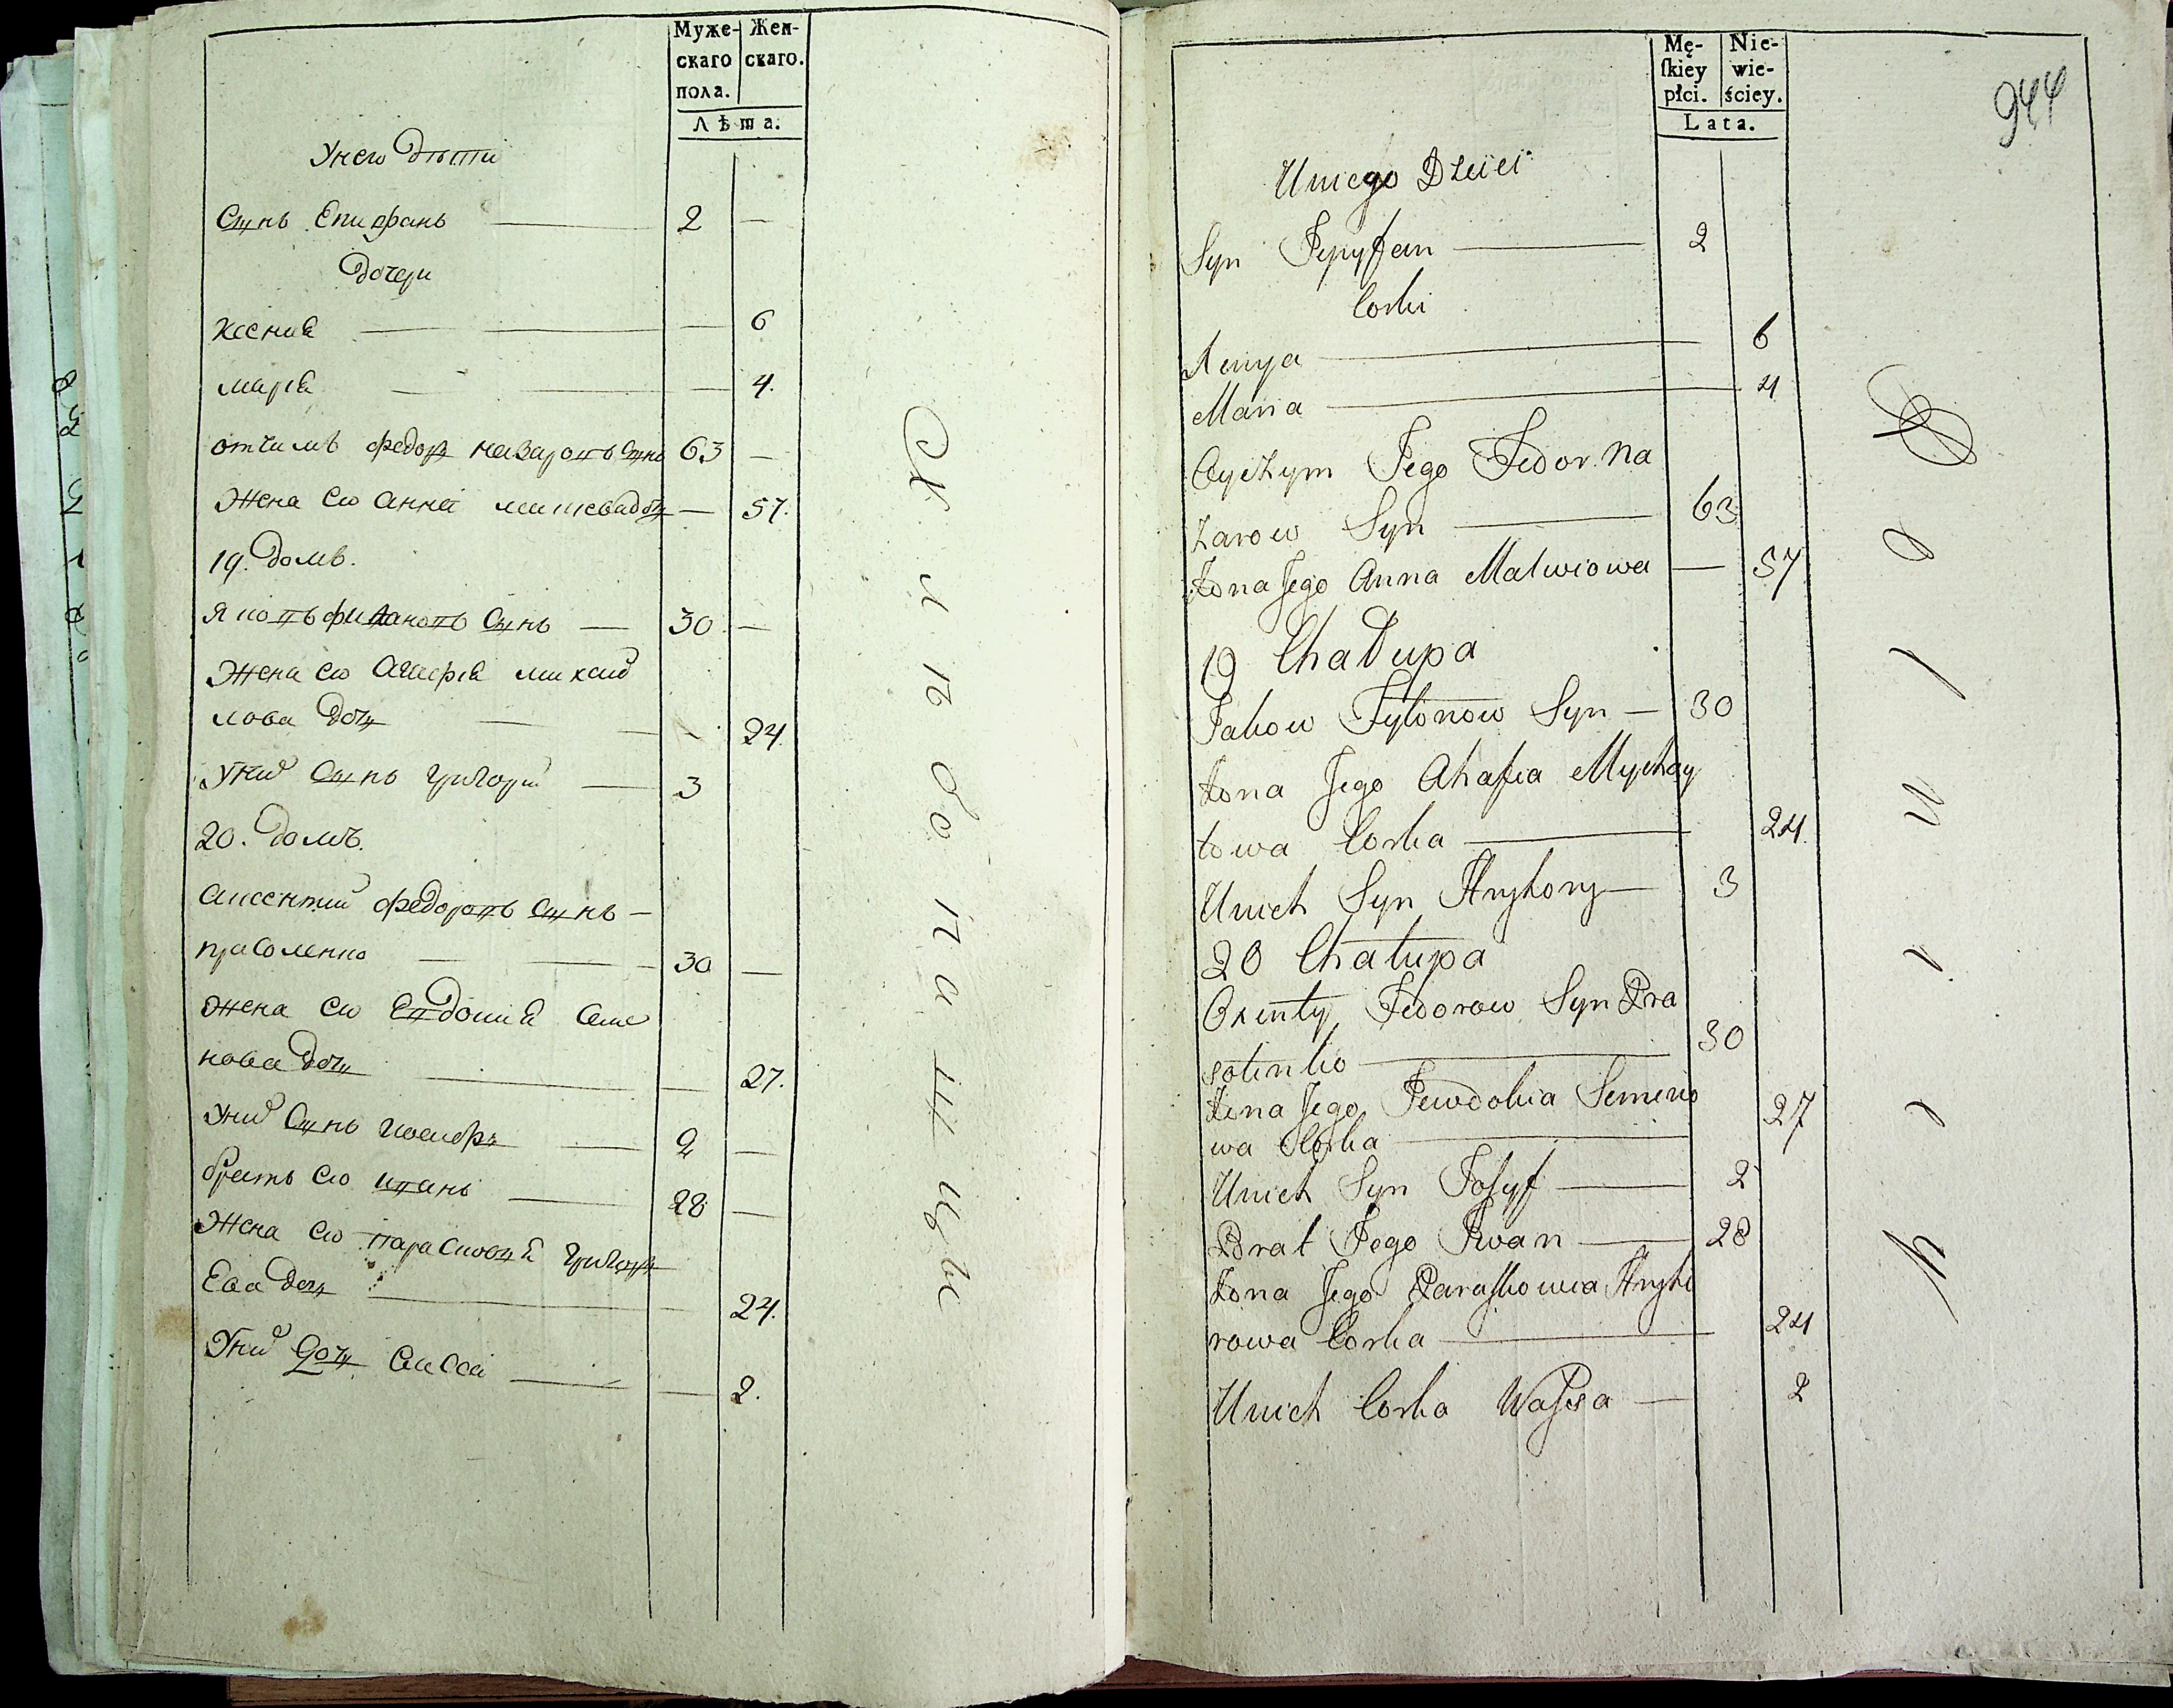 Муже-
скаго
пола.
Жен-
скаго.
Лѣта.
У него дѣти
Сынъ Епифанъ — 2 —
дочери
Ксения — — 6
Мария — — 4.
отчимъ Федор Назаровъ Сынъ 63 —
Жена его Анна — 57.
19. домъ.
Яковъ Филановъ Сынъ — 30 —
Жена его Агафия Михай
лова дочь — 24.
У них Сынъ Григорий — 3
20. домъ.
Аксентий Федоровъ Сынъ —
прасоленко — 30 —
Жена его Евдокия Семе
нова дочь — 27.
У них Сынъ Иосифъ — 2 —
братъ его Иванъ — 28 —
Жена его Парасковия Григорь
Ева дочь — 24.
У них дочь Васса — 2.
Mę-
ſkiey
płci.
Nie-
wie-
ściey.
Lata.
944
Uniego Dzieci
Syn Jepyfan — 2
Corki
Xenya — 6
Maria — 4
Oyczym Jego Fedor Na
zarow Syn — 63
Żona Jego Anna Matwiowa — 57
19 Chałupa
Jakow Fyłonow Syn — 30
Żona Jego Ahafia Mychay
łowa Corka — 24.
Unich Syn Hryhory — 3
20 Chałupa
Oxenty Fedorow Syn Pra
solenko — 30
Żona Jego Jewdokia Semeno
wa Corka — 27
Unich Syn Josyf — 2
Brat Jego Iwan — 28
Żona Jego Paraſkowia Hryho
rowa Corka — 24
Unich Corka Waſsa — 2